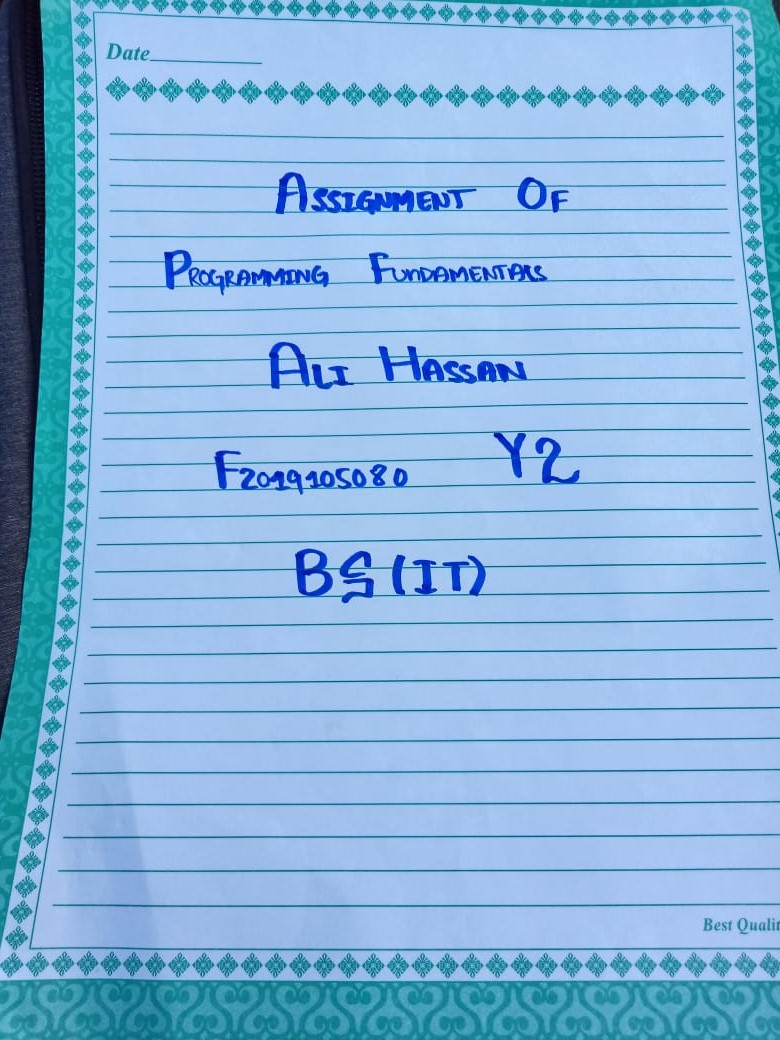 Date
ASSIGNMENT OF
PROGRAMMING FUNDAMENTALS
ALI HASSAN
F2019105080 Y2
BS (IT)
Best Qualit